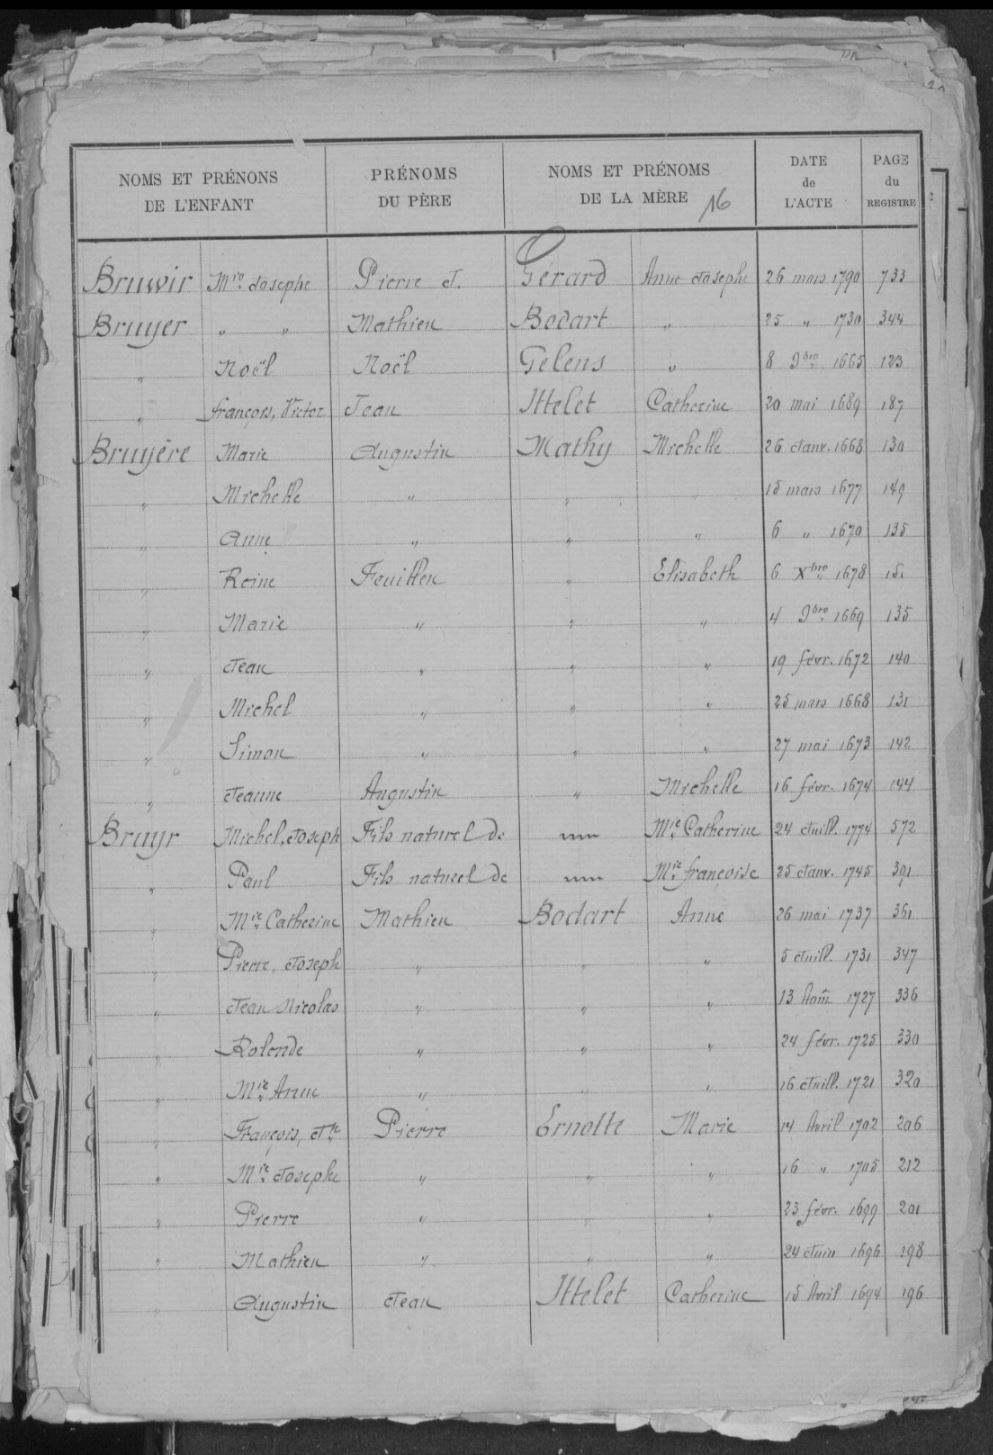 NOMS ET PRÉNONS DE L'ENFANT | PRÉNOMS DU PÈRE | NOMS ET PRÉNOMS DE LA MÈRE 16 | DATE de L'ACTE | PAGE du REGISTRE
Bruwir Mie Josephe Pierre J. Gérard Anne Josephe 26 mars 1790 733
Bruyer " " Mathieu Bodart " 25 " 1730 344
" Noël Noël Gelens " 8 9bre 1665 123
" françois, Victor Jean Ittelet Catherine 20 mai 1689 187
Bruyère Marie Augustin Mathy Michelle 26 Janv. 1668 130
" Michelle " " 15 mars 1677 149
" Anne " " " 6 " 1670 135
" Reine Feuillen " Elisabeth 6 Xbre 1678 151
" Marie " " " 4 9bre 1669 135
" Jean " " " 19 févr. 1672 140
" Michel " " " 25 mars 1668 131
" Simon " " " 27 mai 1673 142
" Jeanne Augustin " Michelle 16 févr. 1674 144
Bruyr Michel, Joseph Fils naturel de Mie Catherine 24 Juill. 1774 572
" Paul Fils naturel de Mie françoise 25 Janv. 1745 391
" Mie Catherine Mathieu Bodart Anne 26 mai 1737 361
" Pierre, Joseph " " " 5 Juill. 1731 347
" Jean Nicolas " " " 13 Août 1727 336
" Rolende " " " 24 févr. 1725 330
" Mie Anne " " " 16 Juill. 1721 320
" François, Jh Pierre Ernotte Marie 14 Avril 1702 206
" Mie Josephe " " " 16 " 1705 212
" Pierre " " " 23 févr. 1699 201
" Mathieu " " " 24 Juin 1696 198
" Augustin Jean Ittelet Catherine 15 Avril 1694 196